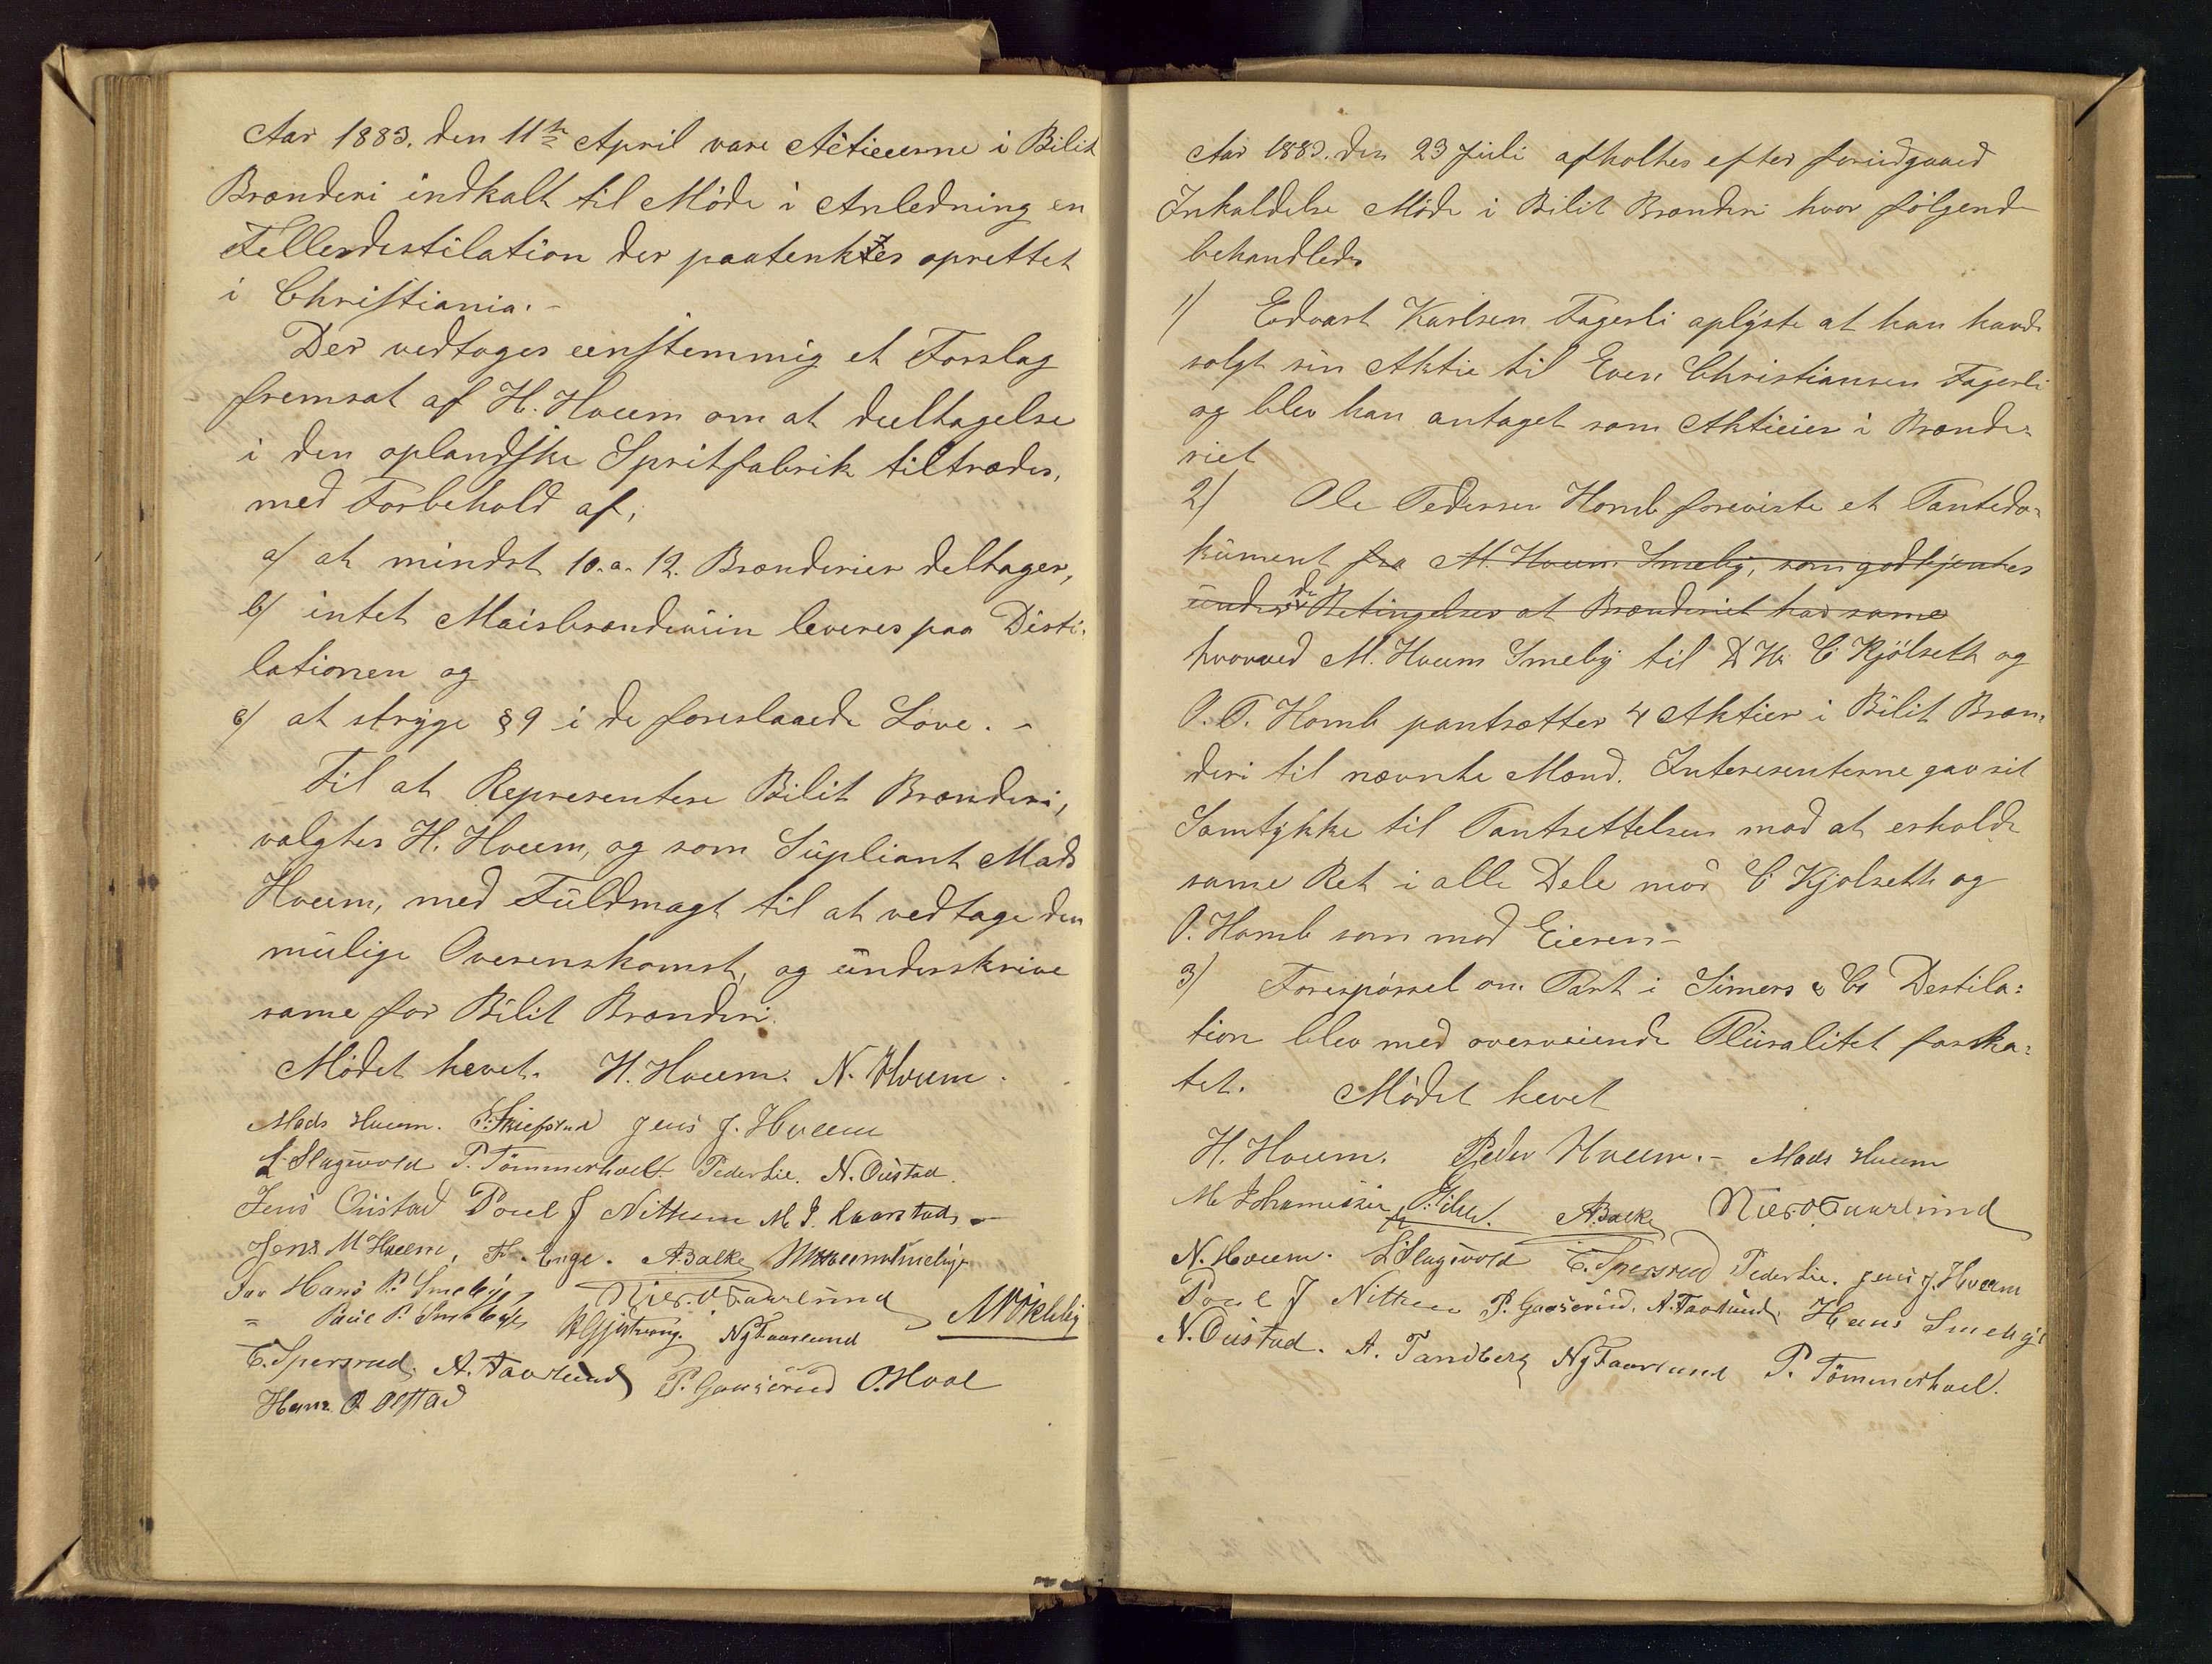 Aar 1883. den 11te April vare Actieeerne i Bilit
Brænderi indkalt til Møde i Anledning en
Fellesdestilation der paatenktes oprettet
i Christiania. -
Der vedtoges eenstemmig et Forslag
fremsat af H. Hveem om at deeltagelse
i den oplandske Spritfabrik tiltrædes,
med Forbehold af;
a/ at mindst 10. a. 12. Brænderier deltager,
b/ intet Maisbrændeviin leveres paa Desti-
lationen og
c/ at stryge § 9 i de foreslaaede Love. -
Til at Representere Bilit Brænderi,
valgtes H. Hveem, og som Supliant Mads
Hveem, med Fuldmagt til at vedtage den
mulige Overenskomst, og underskrive
same for Bilit Brænderi.
Mødet hevet. H. Hveem. N. Hveem.
Mads Hveem. P. Skiefsrud Jens J. Hveem
L. Slagsvold P. Tømmerhoel. Peder Lie. N. Oustad.
Jens Oustad Povel J Nitteen M. J. Kaarstad. -
Jens M Hveem, Fr. Enge. A. Balke M Hveem Smeby
For Hans P. Smeby Nier. O Faarlund
" Paul P. Smeby N J Faarlund M Økleby
E. Spersrud. A. Faarlund P. Gaaserud O. Hoel
Hans O. Olstad
Aar 1883. den 23 Juli afholtes efter foriudgaaed
Inkaldelse Møde i Bilit Brænderi hvor følgende
behandledes
1/ Edvart Karlsen Fagerli oplyste at han havde
solgt sin Aktie til Even Christiansen Fagerli
og blev han antaget som Aktieier i Brænde-
riet
2/ Ole Pedersen Homb foreviste et Pantedo-
kument fra M. Hveem Smeby, som godkjentes
under de Betingelser at Brænderiet har same
hvorved M. Hveem Smeby til D Hr. C Kjølseth og
O. P. Homb pantsætter 4 Aktier i Bilit Bræn-
deri til nævnte Mænd. Interesenterne gav sit
Samtykke til Pantsettelsen mod at erholde
same Ret i alle Dele mod C Kjølseth og
O. Homb som mod Eieren -
3/ Forespørsel om Part i Simers & Co Destila-
tion blev med overveiende Pluralitet forska-
tet. Mødet hevet
H. Hveem. Peder Hveem. - Mads Hveem
M Johannesen A. Balke Nier. O Faarlund
N. Hveem. L Slagsvold E. Spersrud Peder Lie. Jens J. Hveem
Povel J Nitteen P. Gaaserud. A. Faarlund. Hans Smeby
N. Oustad. A. Sandberg N J Faarlund P. Tømmerhoel.